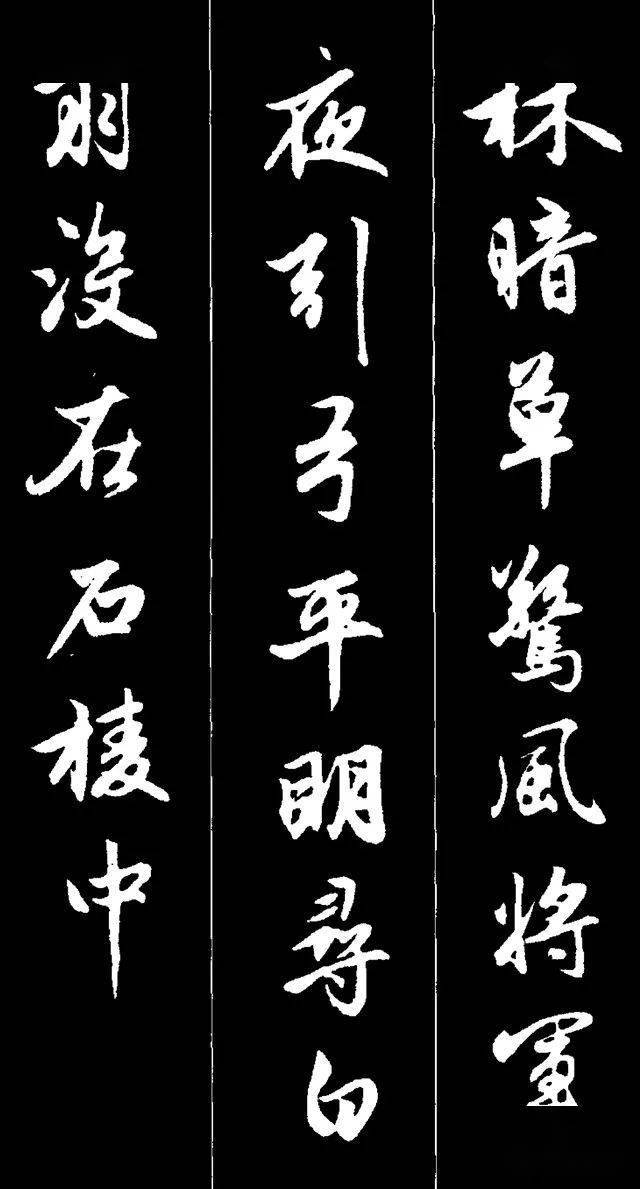 林暗草驚風將軍
夜引弓平明尋白
羽沒在石稜中